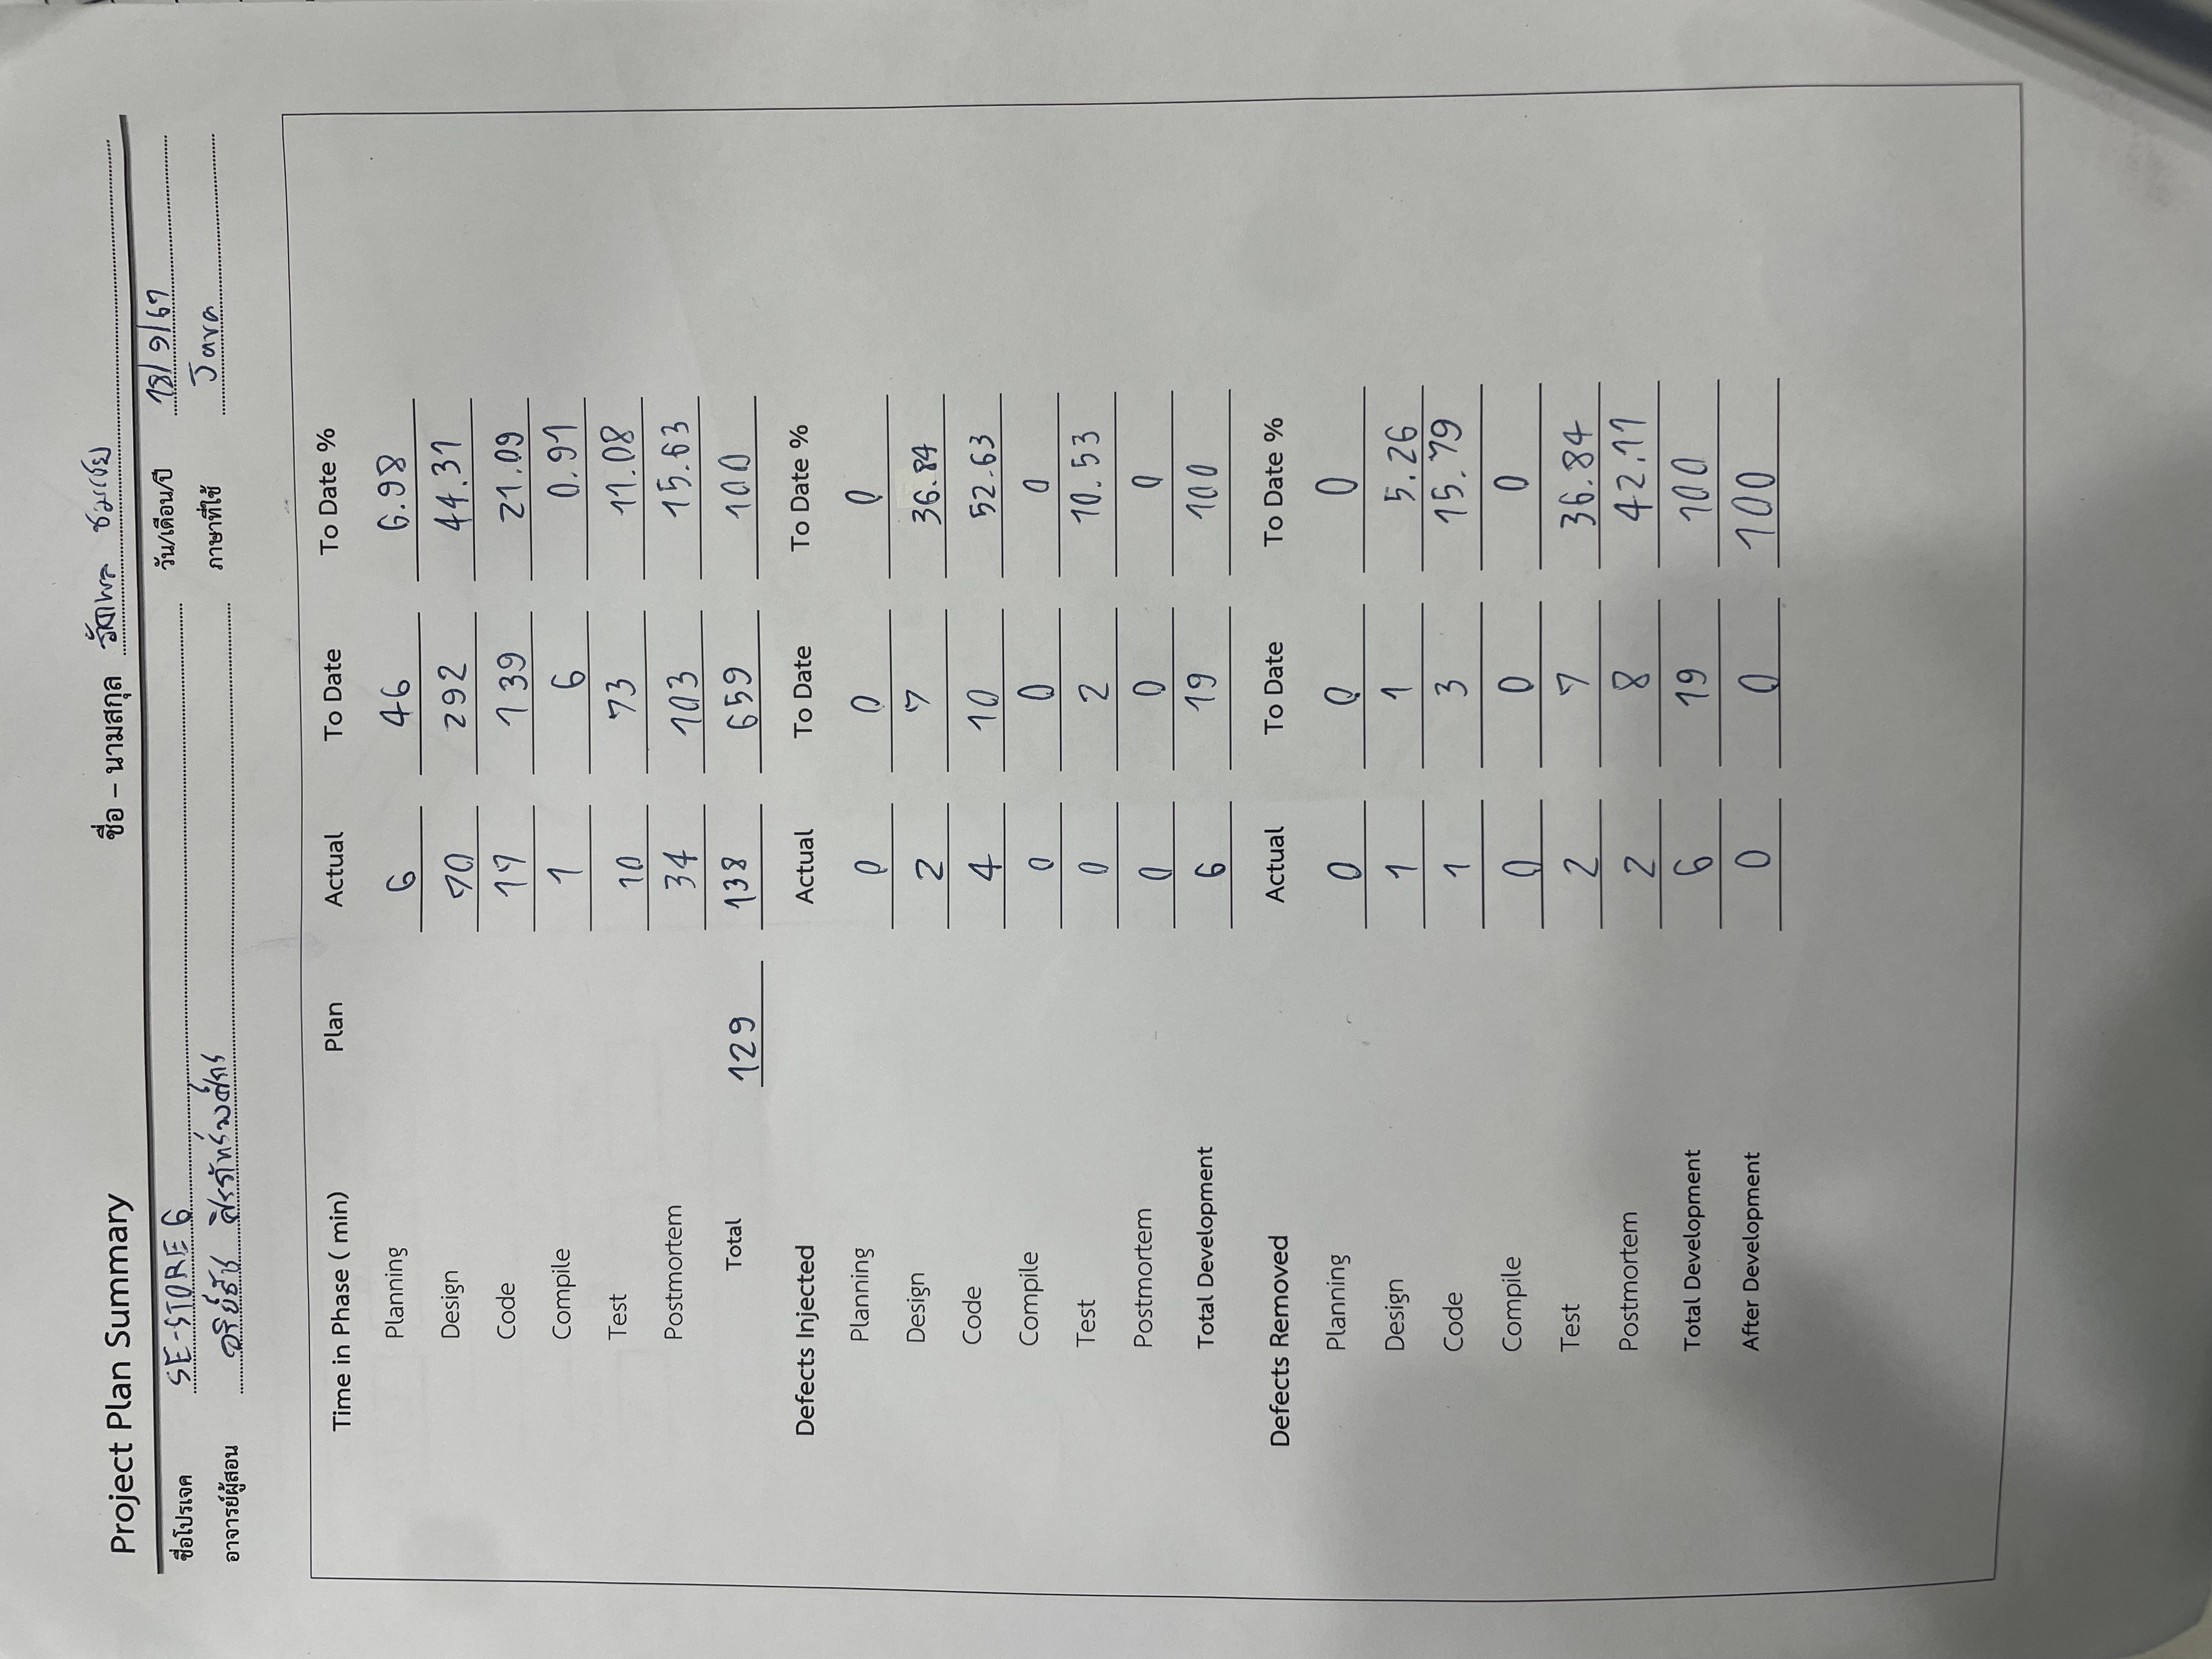 Project Plan Summary ชื่อ – นามสกุล
ชื่อโปรเจค SE-STORE 6 วัน/เดือน/ปี 18/9/67
อาจารย์ผู้สอน ภาษาที่ใช้ Java
Time in Phase ( min) Plan Actual To Date To Date %
Planning 6 46 6.98
Design 70 292 44.31
Code 17 139 21.09
Compile 1 6 0.91
Test 10 73 11.08
Postmortem 34 103 15.63
Total 129 138 659 100
Defects Injected Actual To Date To Date %
Planning 0 0 0
Design 2 7 36.84
Code 4 10 52.63
Compile 0 0 0
Test 0 2 10.53
Postmortem 0 0 0
Total Development 6 19 100
Defects Removed Actual To Date To Date %
Planning 0 0 0
Design 1 1 5.26
Code 1 3 15.79
Compile 0 0 0
Test 2 7 36.84
Postmortem 2 8 42.11
Total Development 6 19 100
After Development 0 0 100